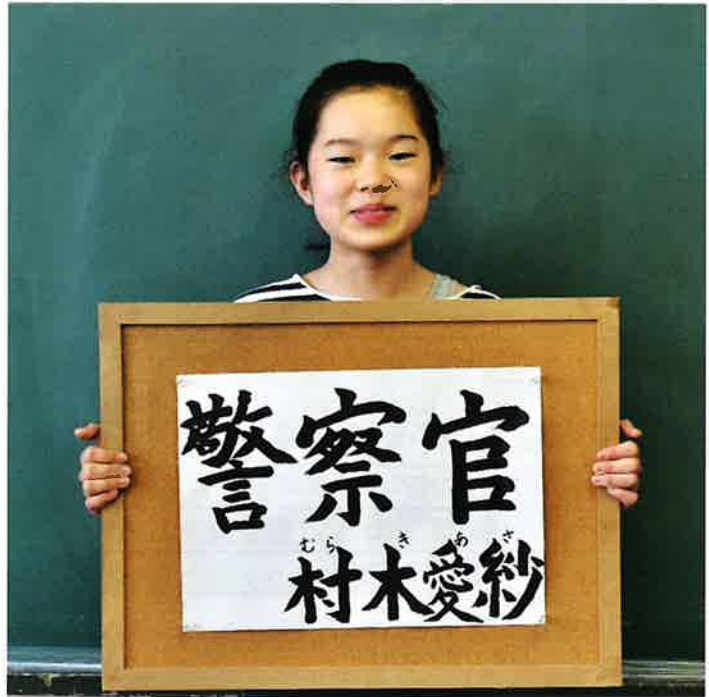 警察官
むらきあさ
村木愛紗